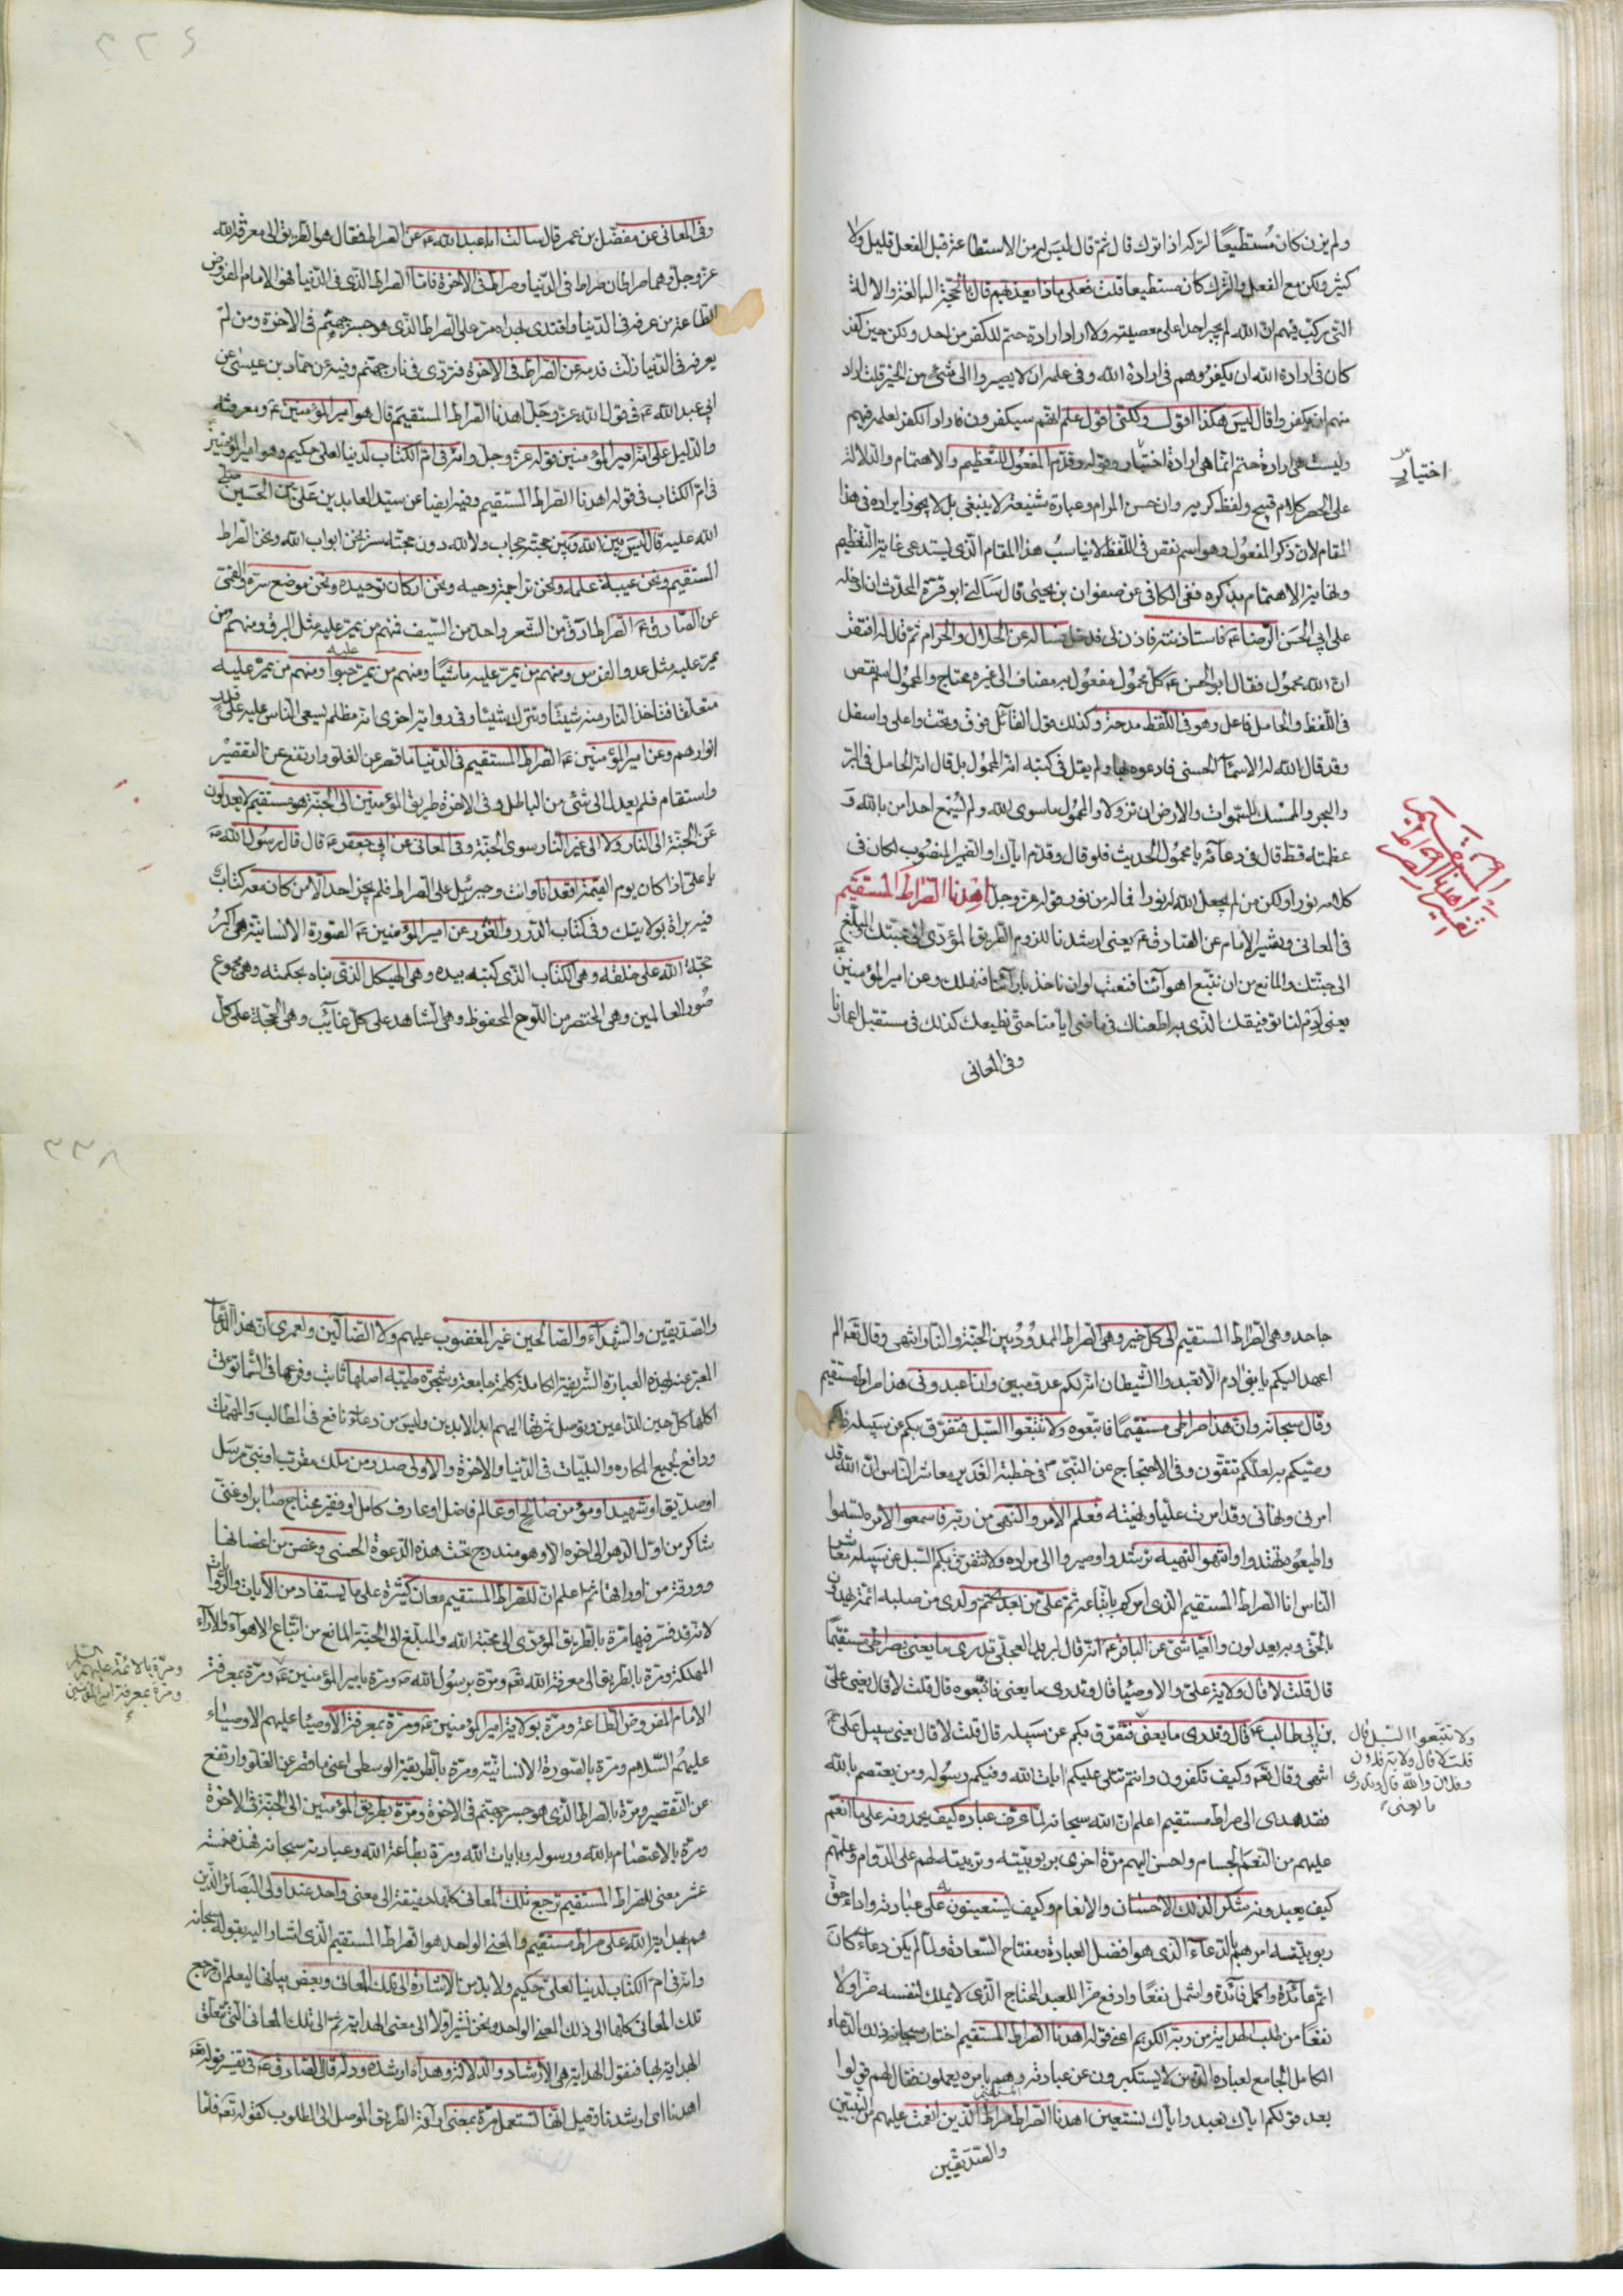 ولم يزن كان مستطيعًا لتركه اذا ترك قال ثم قال ليس له من الاستطاعة قبل الفعل قليل ولا
كثير ولكن مع الفعل والترك كان مستطيعا قلت فعلى ماذا يعذبهم قال بالحجة البالغة والالة
التى ركب فيهم ان الله لم يجبر احدا على معصيته ولا اراد ارادة حتم للكفر من احد ولكن حين كفر
كان فى ارادة الله ان يكفر وهم فى ارادة الله وفى علمه ان لا يصيروا الى شئ من الخير قلت اراد
منهم ان يكفروا قال ليس هكذا اقول ولكنى اقول علم انهم سيكفرون فاراد الكفر لعلمه فيهم
وليست هى ارادة حتم انما هى ارادة اختيار وقوله وقدم المفعول للتعظيم والاهتمام والدلالة
اختيار
على الحصر كلام قبيح ولفظ كريه وان حسن المرام وعبارة شنيعة لا ينبغى بل لا يجوز ايراده فى هذا
المقام لان ذكر المفعول وهو اسم نقص فى اللفظ لا يناسب هذا المقام الذى يستدعى غاية التعظيم
ونهاية الاهتمام بذكره ففى الكافى عن صفوان بن يحيى قال سالنى ابو قرة المحدث ان ادخله
على ابى الحسن الرضا ع فاستاذنته فاذن لى فدخل فساله عن الحلال والحرام ثم قال له افتقر
ان الله محمول فقال ابو الحسن ع كل محمول مفعول به مضاف الى غيره محتاج والمحمول اسم نقص
فى اللفظ والحامل فاعل وهو فى اللفظ مدحة وكذلك قول القائل فوق وتحت واعلى واسفل
وقد قال الله له الاسماء الحسنى فادعوه بها ولم يقل فى كتبه انه المحمول بل قال انه الحامل فى البر
والبحر والممسك السموات والارض ان تزولا والمحمول ما سوى الله ولم يسمع احد امن بالله و
عظمته قط قال فى دعائه يا محمول الحديث فلو قال وقدم اياك او الضمير المنصوب لكان فى
كلامه نور ولكن من لم يجعل الله له نورا فما له من نور قوله عز وجل اهدنا الصراط المستقيم
تفسير اهدنا الصراط المستقيم
فى المعانى وتفسير الامام عن الصادق ع يعنى ارشدنا للزوم الطريق المؤدى الى محبتك والمبلغ
الى جنتك والمانع من ان نتبع اهوائنا فنعطب او ان ناخذ بارائنا فنهلك وعن امير المؤمنين ع
يعنى ادم لنا توفيقك الذى به اطعناك فى ماضى ايامنا حتى نطيعك كذلك فى مستقبل اعمارنا
وفى المعانى
وفى المعانى عن مفضل بن عمر قال سالت ابا عبد الله ع عن الصراط فقال هو الطريق الى معرفة الله
عز وجل وهما صراطان صراط فى الدنيا وصراط فى الاخرة فاما الصراط الذى فى الدنيا فهو الامام المفروض
الطاعة من عرفه فى الدنيا واقتدى بهداه مر على الصراط الذى هو جسر جهنم فى الاخرة ومن لم
يعرفه فى الدنيا زلت قدمه عن الصراط فى الاخرة فتردى فى نار جهنم وفيه عن حماد بن عيسى عن
ابى عبد الله ع فى قول الله عز وجل اهدنا الصراط المستقيم قال هو امير المؤمنين ع ومعرفته
والدليل على انه امير المؤمنين قوله عز وجل وانه فى ام الكتاب لدينا لعلى حكيم وهو امير المؤمنين
فى ام الكتاب فى قوله اهدنا الصراط المستقيم وفيه ايضا عن سيد العابدين على بن الحسين صلى
الله عليه قال ليس بين الله وبين حجته حجاب ولا لله دون حجته ستر نحن ابواب الله ونحن الصراط
المستقيم ونحن عيبة علمه ونحن تراجمة وحيه ونحن اركان توحيده ونحن موضع سره والقمى
عن الصادق ع الصراط ادق من الشعر واحد من السيف فمنهم من يمر عليه مثل البرق ومنهم من
يمر عليه مثل عدو الفرس ومنهم من يمر عليه ماشيًا ومنهم من يمر عليه حبوا ومنهم من يمر عليه
متعلقا فتاخذ النار منه شيئًا وتترك شيئا وفى رواية اخرى انه مظلم يسعى الناس عليه على قدر
انوارهم وعن امير المؤمنين ع الصراط المستقيم فى الدنيا ما قصر عن الغلو وارتفع عن التقصير
واستقام فلم يعدل الى شئ من الباطل وفى الاخرة طريق المؤمنين الى الجنة هو مستقيم لا يعدلون
عن الجنة الى النار ولا الى غير النار سوى الجنة وفى المعانى عن ابى جعفر ع قال قال رسول الله ص
يا على اذا كان يوم القيمة اقعد انا وانت وجبرئيل على الصراط فلم يجز احد الا من كان معه كتاب
فيه براة بولايتك وفى كتاب الدرر والغرر عن امير المؤمنين ع الصورة الانسانية هى اكبر
حجة الله على خلقه وهى الكتاب الذى كتبه بيده وهى الهيكل الذى بناه بحكمته وهى مجموع
صور العالمين وهى المختصر من اللوح المحفوظ وهى الشاهد على كل غائب وهى الحجة على كل
جاحد وهى الصراط المستقيم الى كل خير وهى الصراط الممدود بين الجنة والنار انتهى وقال تع الم
اعهد اليكم يا بنى ادم الا تعبدوا الشيطان انه لكم عدو مبين وان اعبدونى هذا صراط مستقيم
وقال سبحانه وان هذا صراطى مستقيمًا فاتبعوه ولا تتبعوا السبل فتفرق بكم عن سبيله ذلكم
وصيكم به لعلكم تتقون وفى الاحتجاج عن النبى ص فى خطبة الغدير معاشر الناس ان الله قد
امرنى ونهانى وقد امرت عليا ونهيته فعلم الامر والنهى من ربه فاسمعوا لامره تسلموا
واطيعوه تهتدوا وانتهوا لنهيه ترشدوا وصيروا الى مراده ولا تتفرق بكم السبل عن سبيله معاشر
الناس انا الصراط المستقيم الذى امركم باتباعه ثم على من بعدى ثم ولدى من صلبه ائمة يهدون
بالحق وبه يعدلون والعياشى عن الباقر ع انه قال لبريد العجلى تدرى ما يعنى بصراطى مستقيمًا
قال قلت لا قال ولاية على والاوصيا قال وتدرى ما يعنى فاتبعوه قال قلت لا قال يعنى على
بن ابى طالب ع قال وتدرى ما يعنى فتفرق بكم عن سبيله قال قلت لا قال يعنى سبيل على ع
ولا تتبعوا السبل قال
قلت لا قال ولاية فلان
وفلان والله قال وتدرى
ما يعنى
انتهى وقال تع وكيف تكفرون وانتم تتلى عليكم ايات الله وفيكم رسوله ومن يعتصم بالله
فقد هدى الى صراط مستقيم اعلم ان الله سبحانه لما عرف عباده كيف يحمدونه على ما انعم
عليهم من النعم الجسام واحسن اليهم مرة اخرى بربوبيته وتربيته لهم على الدوام وعلمهم
كيف يعبدونه شكرا لذلك الاحسان والانعام وكيف يستعينون به على عبادته واداء حق
ربوبيته امرهم بالدعاء الذى هو افضل العبادة ومفتاح السعادة ولما لم يكن دعاء كان
اتم عائدة واكمل فائدة واشمل نفعًا وادفع ضرا للعبد المحتاج الذى لا يملك لنفسه ضرا ولا
نفعًا من طلب الهداية من ربه الكريم اعنى قوله اهدنا الصراط المستقيم اختار سبحانه ذلك الدعاء
الكامل الجامع لعباده الذين لا يستكبرون عن عبادته وهم بامره يعملون فقال لهم قولوا
بعد قولكم اياك نعبد واياك نستعين اهدنا الصراط المستقيم صراط الذين انعمت عليهم من النبيين
والصديقين
والصديقين والشهداء والصالحين غير المغضوب عليهم ولا الضالين ولعمرى ان هذا الدعاء
المعبر عنه بهذه العبارة الشريفة الكاملة كلمة جامعة وشجرة طيبة اصلها ثابت وفرعها فى السماء تؤتى
اكلها كل حين للداعين وتوصل ثمرتها اليهم ابد الابدين وليس من دعاء نافع فى المطالب والمهمات
ودافع لجميع المكاره والبليات فى الدنيا والاخرة والاولى صدر من ملك مقرب او نبى مرسل
او صديق او شهيد او مؤمن صالح او عالم فاضل او عارف كامل او فقير محتاج صابر او غنى
شاكر من اول الدهر الى اخره الا وهو مندرج تحت هذه الدعوة الحسنى وغصن من اغصانها
وورقة من اوراقها ثم اعلم ان للصراط المستقيم معان كثيرة على ما يستفاد من الايات والروايات
لانه قد فسر فيها مرة بالطريق المؤدى الى محبة الله والمبلغ الى الجنة المانع من اتباع الاهواء والاراء
المهلكة ومرة بالطريق الى معرفة الله تع ومرة برسول الله ص ومرة بامير المؤمنين ع ومرة بمعرفة
ومرة بالائمة عليهم السلم
ومرة بمعرفة امير المؤمنين
ع
الامام المفروض الطاعة ومرة بولاية امير المؤمنين ع ومرة بمعرفة الاوصيا عليهم الاوصياء
عليهم السلام ومرة بالصورة الانسانية ومرة بالطريقة الوسطى اعنى ما قصر عن الغلو وارتفع
عن التقصير ومرة بالصراط الذى هو جسر جهنم فى الاخرة ومرة بطريق المؤمنين الى الجنة فى الاخرة
ومرة بالاعتصام بالله ورسوله وبايات الله ومرة بطاعة الله وعبادته سبحانه فهذه خمسة
عشر معنى للصراط المستقيم ترجع تلك المعانى كلها حقيقة الى معنى واحد عند اولى البصائر الذين
هم بهداية الله على صراط مستقيم والمعنى الواحد هو الصراط المستقيم الذى اشار اليه بقوله سبحانه
وانه فى ام الكتاب لدينا لعلى حكيم ولا بد من الاشارة الى تلك المعانى وبعض بيانها ليعلم ان مرجع
تلك المعانى كلها الى ذلك المعنى الواحد ونحن نشير اولا الى معنى الهداية ثم الى تلك المعانى التى تتعلق
الهداية بها فنقول الهداية هى الارشاد والدلالة وهداه ارشده ودله قال الصادق ع فى تفسير قوله تع
اهدنا اى ارشدنا وقيل انها تستعمل مرة بمعنى اراءة الطريق الموصل الى المطلوب كقوله تع فاما
٣٣٨